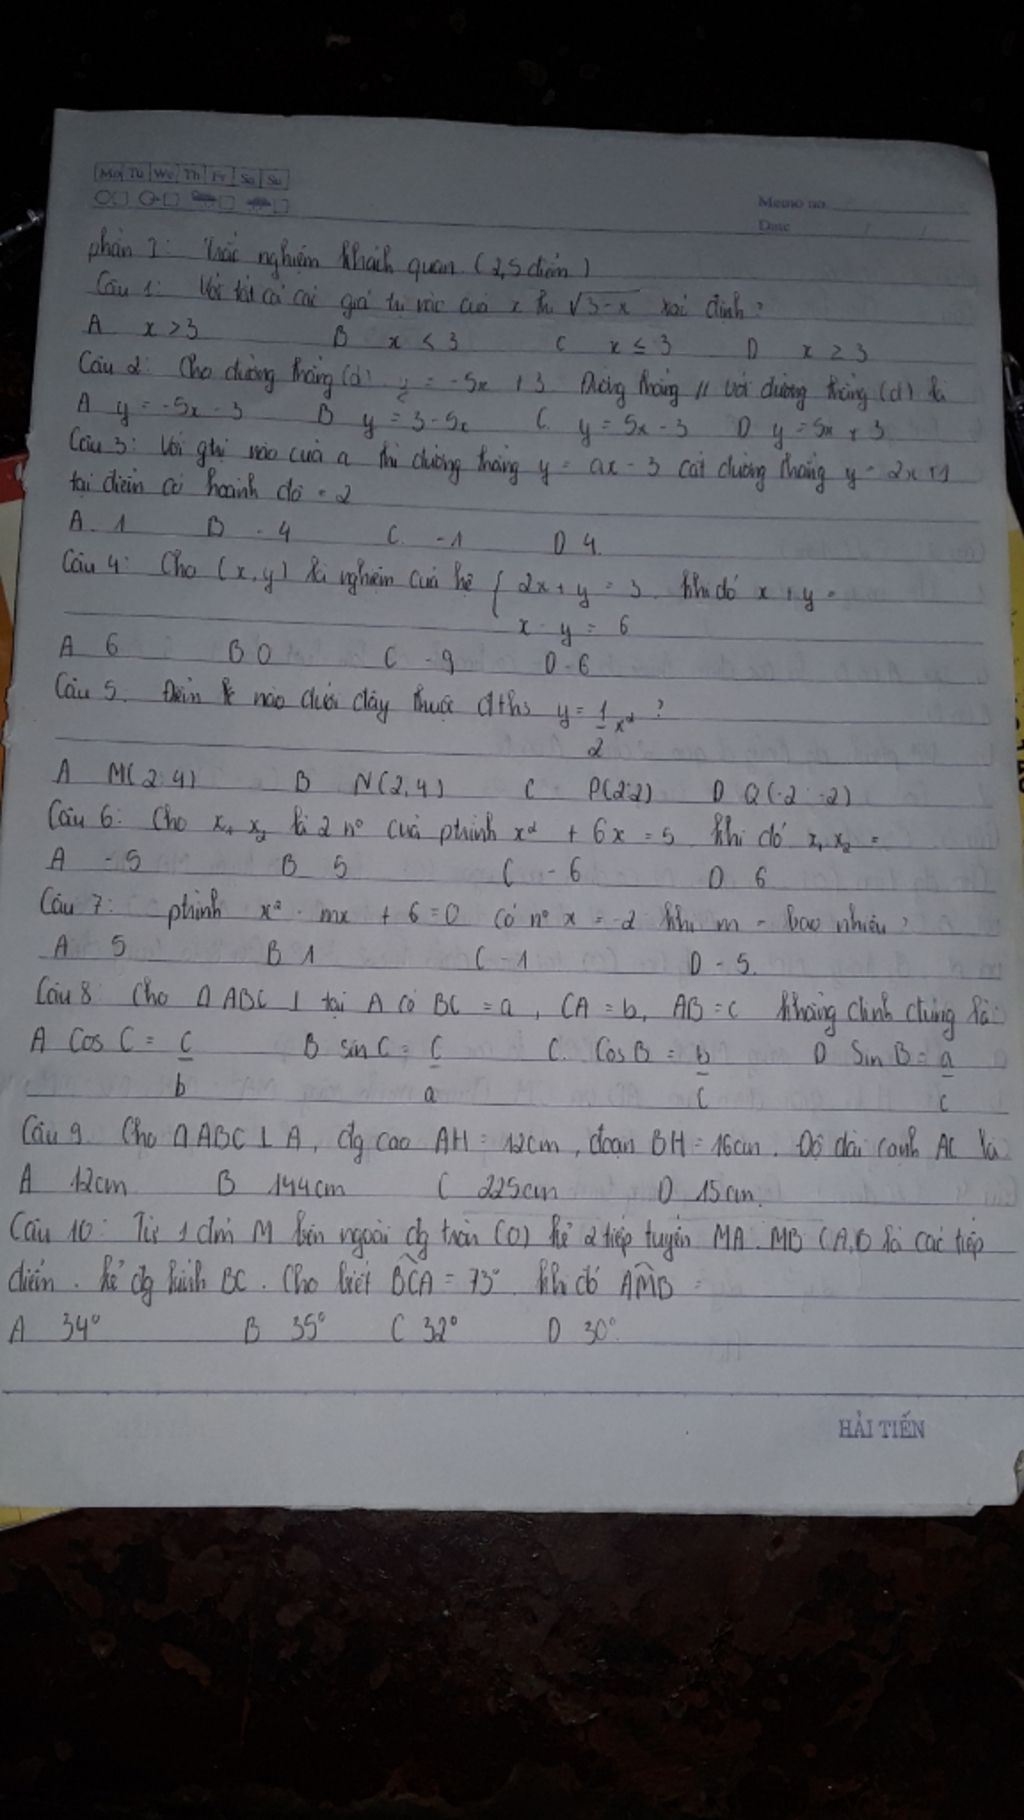 Mo Tu We Th Fr Sa Su
Memo no.
Date / /
phần I: Trắc nghiệm khách quan (2,5 điểm)
Câu 1: Với tất cả các giá trị nào của x thì √3-x xác định?
A x > 3 B x < 3 C x ≤ 3 D x ≥ 3
Câu 2: Cho đường thẳng (d) y = -5x + 3. Đường thẳng // với đường thẳng (d) là
A y = -5x - 3 B y = 3 - 5x C. y = 5x - 3 D y = 5x + 3
Câu 3: Với gtrị nào của a thì đường thẳng y = ax - 3 cắt đường thẳng y = 2x + 1
tại điểm có hoành độ = 2
A. 1 B - 4 C. -1 D 4.
Câu 4: Cho (x, y) là nghiệm của hệ { 2x + y = 3. Khi đó x + y =
x - y = 6
A 6 B 0 C -9 D -6
Câu 5. Điểm nào dưới đây thuộc đths y = 1/2 x² ?
A M(2;4) B N(2,4) C P(2;2) D Q(-2 -2)
Câu 6: Cho x₁ x₂ là 2 n° của ptrình x² + 6x = 5. Khi đó x₁ x₂ =
A -5 B 5 C -6 D 6
Câu 7: ptrình x² - mx + 6 = 0 có n° x = -2 khi m = bao nhiêu?
A 5 B 1 C -1 D -5.
Câu 8: Cho Δ ABC ⊥ tại A có BC = a, CA = b, AB = c Khẳng định đúng là:
A Cos C = c/b B sin C = c/a C. Cos B = b/c D Sin B = a/c
Câu 9. Cho Δ ABC ⊥ A, đg cao AH = 12cm, đoạn BH = 16cm. Độ dài cạnh AC là
A 12cm B 144cm C 225cm D 15cm.
Câu 10: Từ 1 điểm M bên ngoài đg tròn (O) kẻ 2 tiếp tuyến MA. MB (A, B là các tiếp
điểm. kẻ đg kính BC. Cho biết BCA = 73° khi đó AMB =
A 34° B 35° C 32° D 30°.
HẢI TIẾN